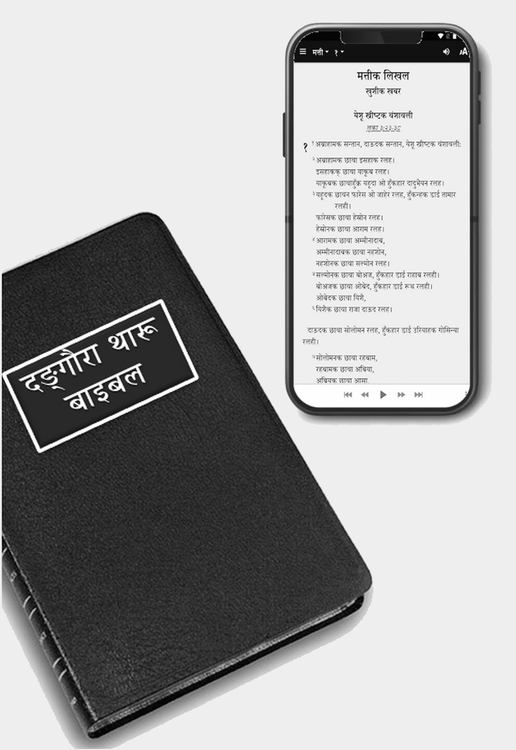 दङ्गौरा थारू
बाइबल
मत्ती १
AA
मत्तीक लिखल
खुशीक खबर
येशू ख्रीष्टक वंशावली
लूका ३:२३-३८
१ १ अब्राहामक सन्तान, दाऊदक सन्तान, येशू ख्रीष्टक वंशावली:
२ अब्राहामक छावा इसहाक रलह।
इसहाकक् छावा याकूब रलह।
याकूबक छावाहुँक्र यहूदा ओ हुँकहार दादुभैयन रलह।
३ यहूदक छावन फारेस ओ जाहेर रलह, हुँकन्हक डाई तामार
रलही।
फारेसक छावा हेस्रोन रलह।
हेस्रोनक छावा आराम रलह।
४ आरामक छावा अम्मीनादाब,
अम्मीनादाबक छावा नहशोन,
नहशोनक छावा सल्मोन रलह।
५ सल्मोनक छावा बोअज, हुँकहार डाई राहाब रलही।
बोअजक छावा ओबेद, हुँकहार डाई रूथ रलही।
ओबेदक छावा यिशै,
६ यिशैक छावा राजा दाऊद रलह।
दाऊदक छावा सोलोमन रलह, हुँकहार डाई उरियाहक गोसिन्या
रलही।
७ सोलोमनक छावा रहबाम,
रहबामक छावा अबिया,
अबियक छावा आसा,